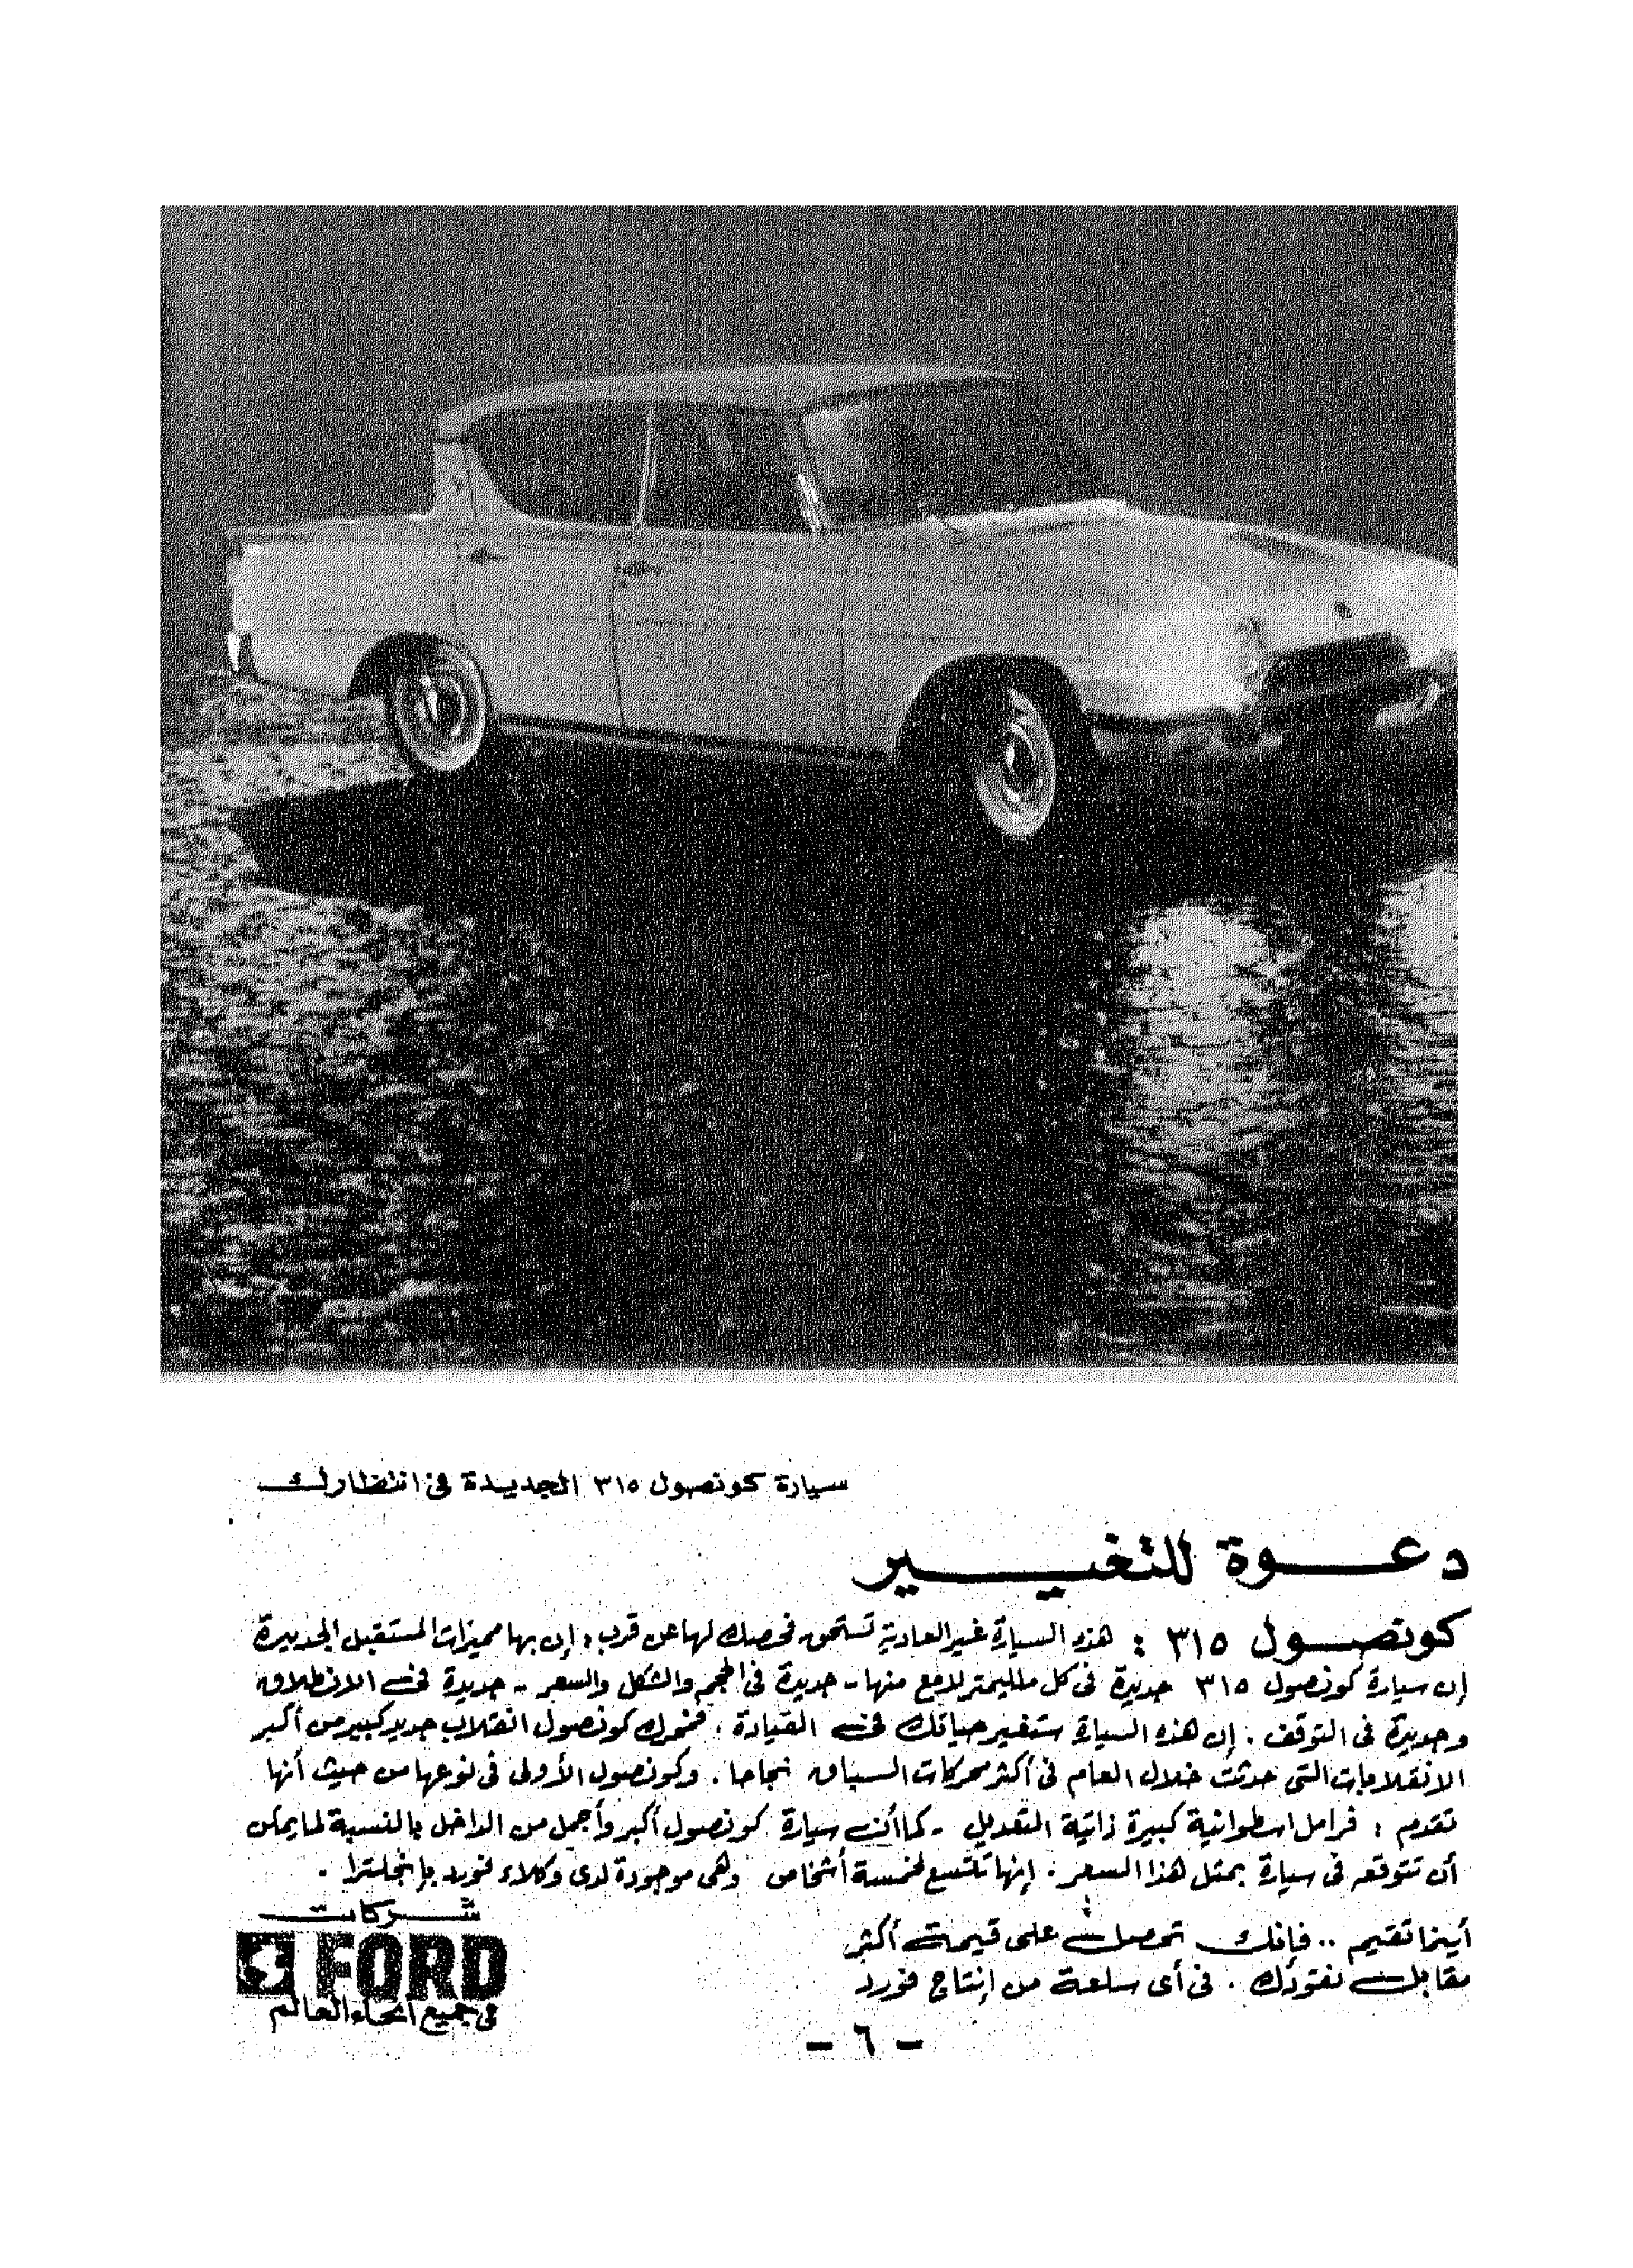 سيارة كونصول ٣١٥ الجديدة في انتظارك
دعوة للتغيير
كونصول ٣١٥ : هذه السيارة غير العادية تستحق فحصك لها عن قرب ؛ إن بها مميزات المستقبل الجديرة
إن سيارة كونصول ٣١٥ جديدة في كل ملليمتر لامع منها - جديدة في الحجم والشكل والسعر - جديدة في الانطلاق
وجديدة في التوقف . إن هذه السيارة ستغير حياتك في القيادة ، فمحرك كونصول انقلاب جديد كبير من أكبر
الانقلابات التي حدثت خلال العام في أكثر محركات السباق نجاحا . وكونصول الأولى في نوعها من حيث أنها
تقدم : فرامل اسطوانية كبيرة ذاتية التعديل - كما أن سيارة كونصول أكبر وأجمل من الداخل بالنسبة لما يمكن
أن تتوقعه في سيارة بمثل هذا السعر . إنها تتسع لخمسة أشخاص وهي موجودة لدى وكلاء فورد بإنجلترا .
أينما تقيم .. فإنك تحصل على قيمة أكثر
مقابل نقودك . في أى سلعة من إنتاج فورد
شركات
FORD
في جميع أنحاء العالم
- ٦ -